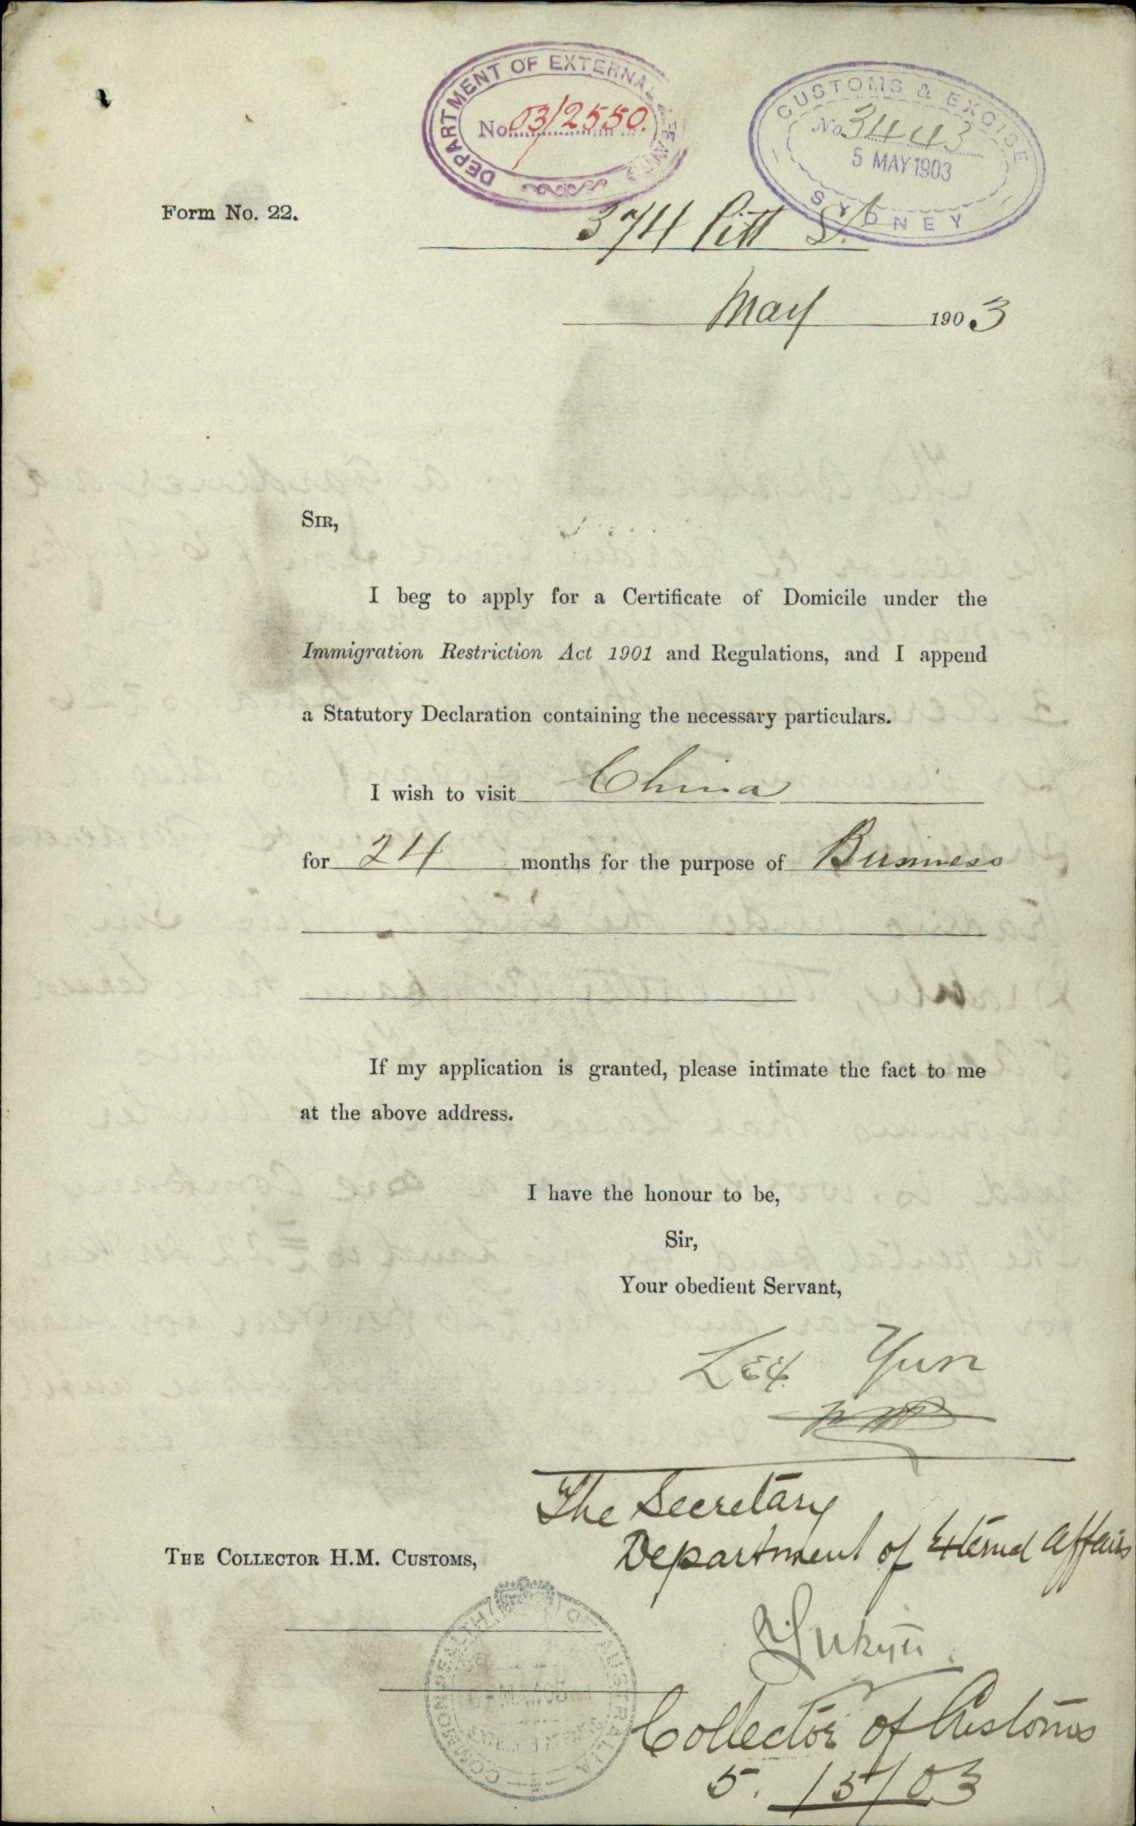 DEPARTMENT OF EXTERNAL AFFAIRS
No. 03/2550.
CUSTOMS & EXCISE
No 3443
5 MAY 1903
SYDNEY
Form No. 22.
374 Pitt St.
May 1903
SIR,
I beg to apply for a Certificate of Domicile under the
Immigration Restriction Act 1901 and Regulations, and I append
a Statutory Declaration containing the necessary particulars.
I wish to visit China
for 24 months for the purpose of Business
If my application is granted, please intimate the fact to me
at the above address.
I have the honour to be,
Sir,
Your obedient Servant,
Lee Yun
The Secretary
Department of External Affairs
THE COLLECTOR H.M. CUSTOMS,
COMMONWEALTH OF AUSTRALIA
Collector of Customs
5. /5/03